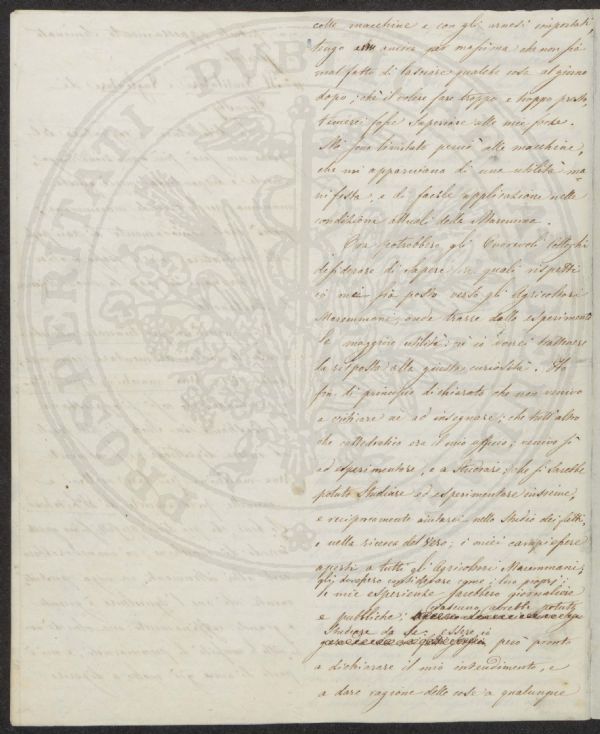 colle macchine e con gli arnesi importati,
tengo anche per massima che non sia
mal fatto di lasciare qualche cosa al giorno
dopo; chè il volere fare troppo e troppo presto
temerei fosse superiore alle mie forze.
Mi sono limitato perciò alle macchine,
che mi apparivano di una utilità ma=
nifesta, e di facile applicazione nelle
condizioni attuali della Maremma.
Ora potrebbero gli Onorevoli Colleghi
desiderare di sapere in quali rispetti
io mi sia posto verso gli Agricoltori
Maremmani, onde trarre dallo esperimento
la maggiore utilità; nè io vorrei trattenere
la risposta alla giusta curiosità. Ho
fin di principio dichiarato che non venivo
a criticare nè ad insegnare; che tutt'altro
che cattedratico era il mio ufficio; venivo sì
ad esperimentare, e a studiare, che si sarebbe
potuto studiare ed esperimentare insieme,
e reciprocamente aiutarci nello studio dei fatti,
e nella ricerca del Vero; i miei campi essere
aperti a tutti gli Agricoltori Maremmani;
gli dovessero considerare come i loro propri;
le mie esperienze sarebbero giornaliere
e pubbliche; ciascuno avrebbe potuto
studiare da se; essere io
però pronto
a dichiarare il mio intendimento, e
a dare ragione delle cose a qualunque
PROSPERITATI PUBLICAE